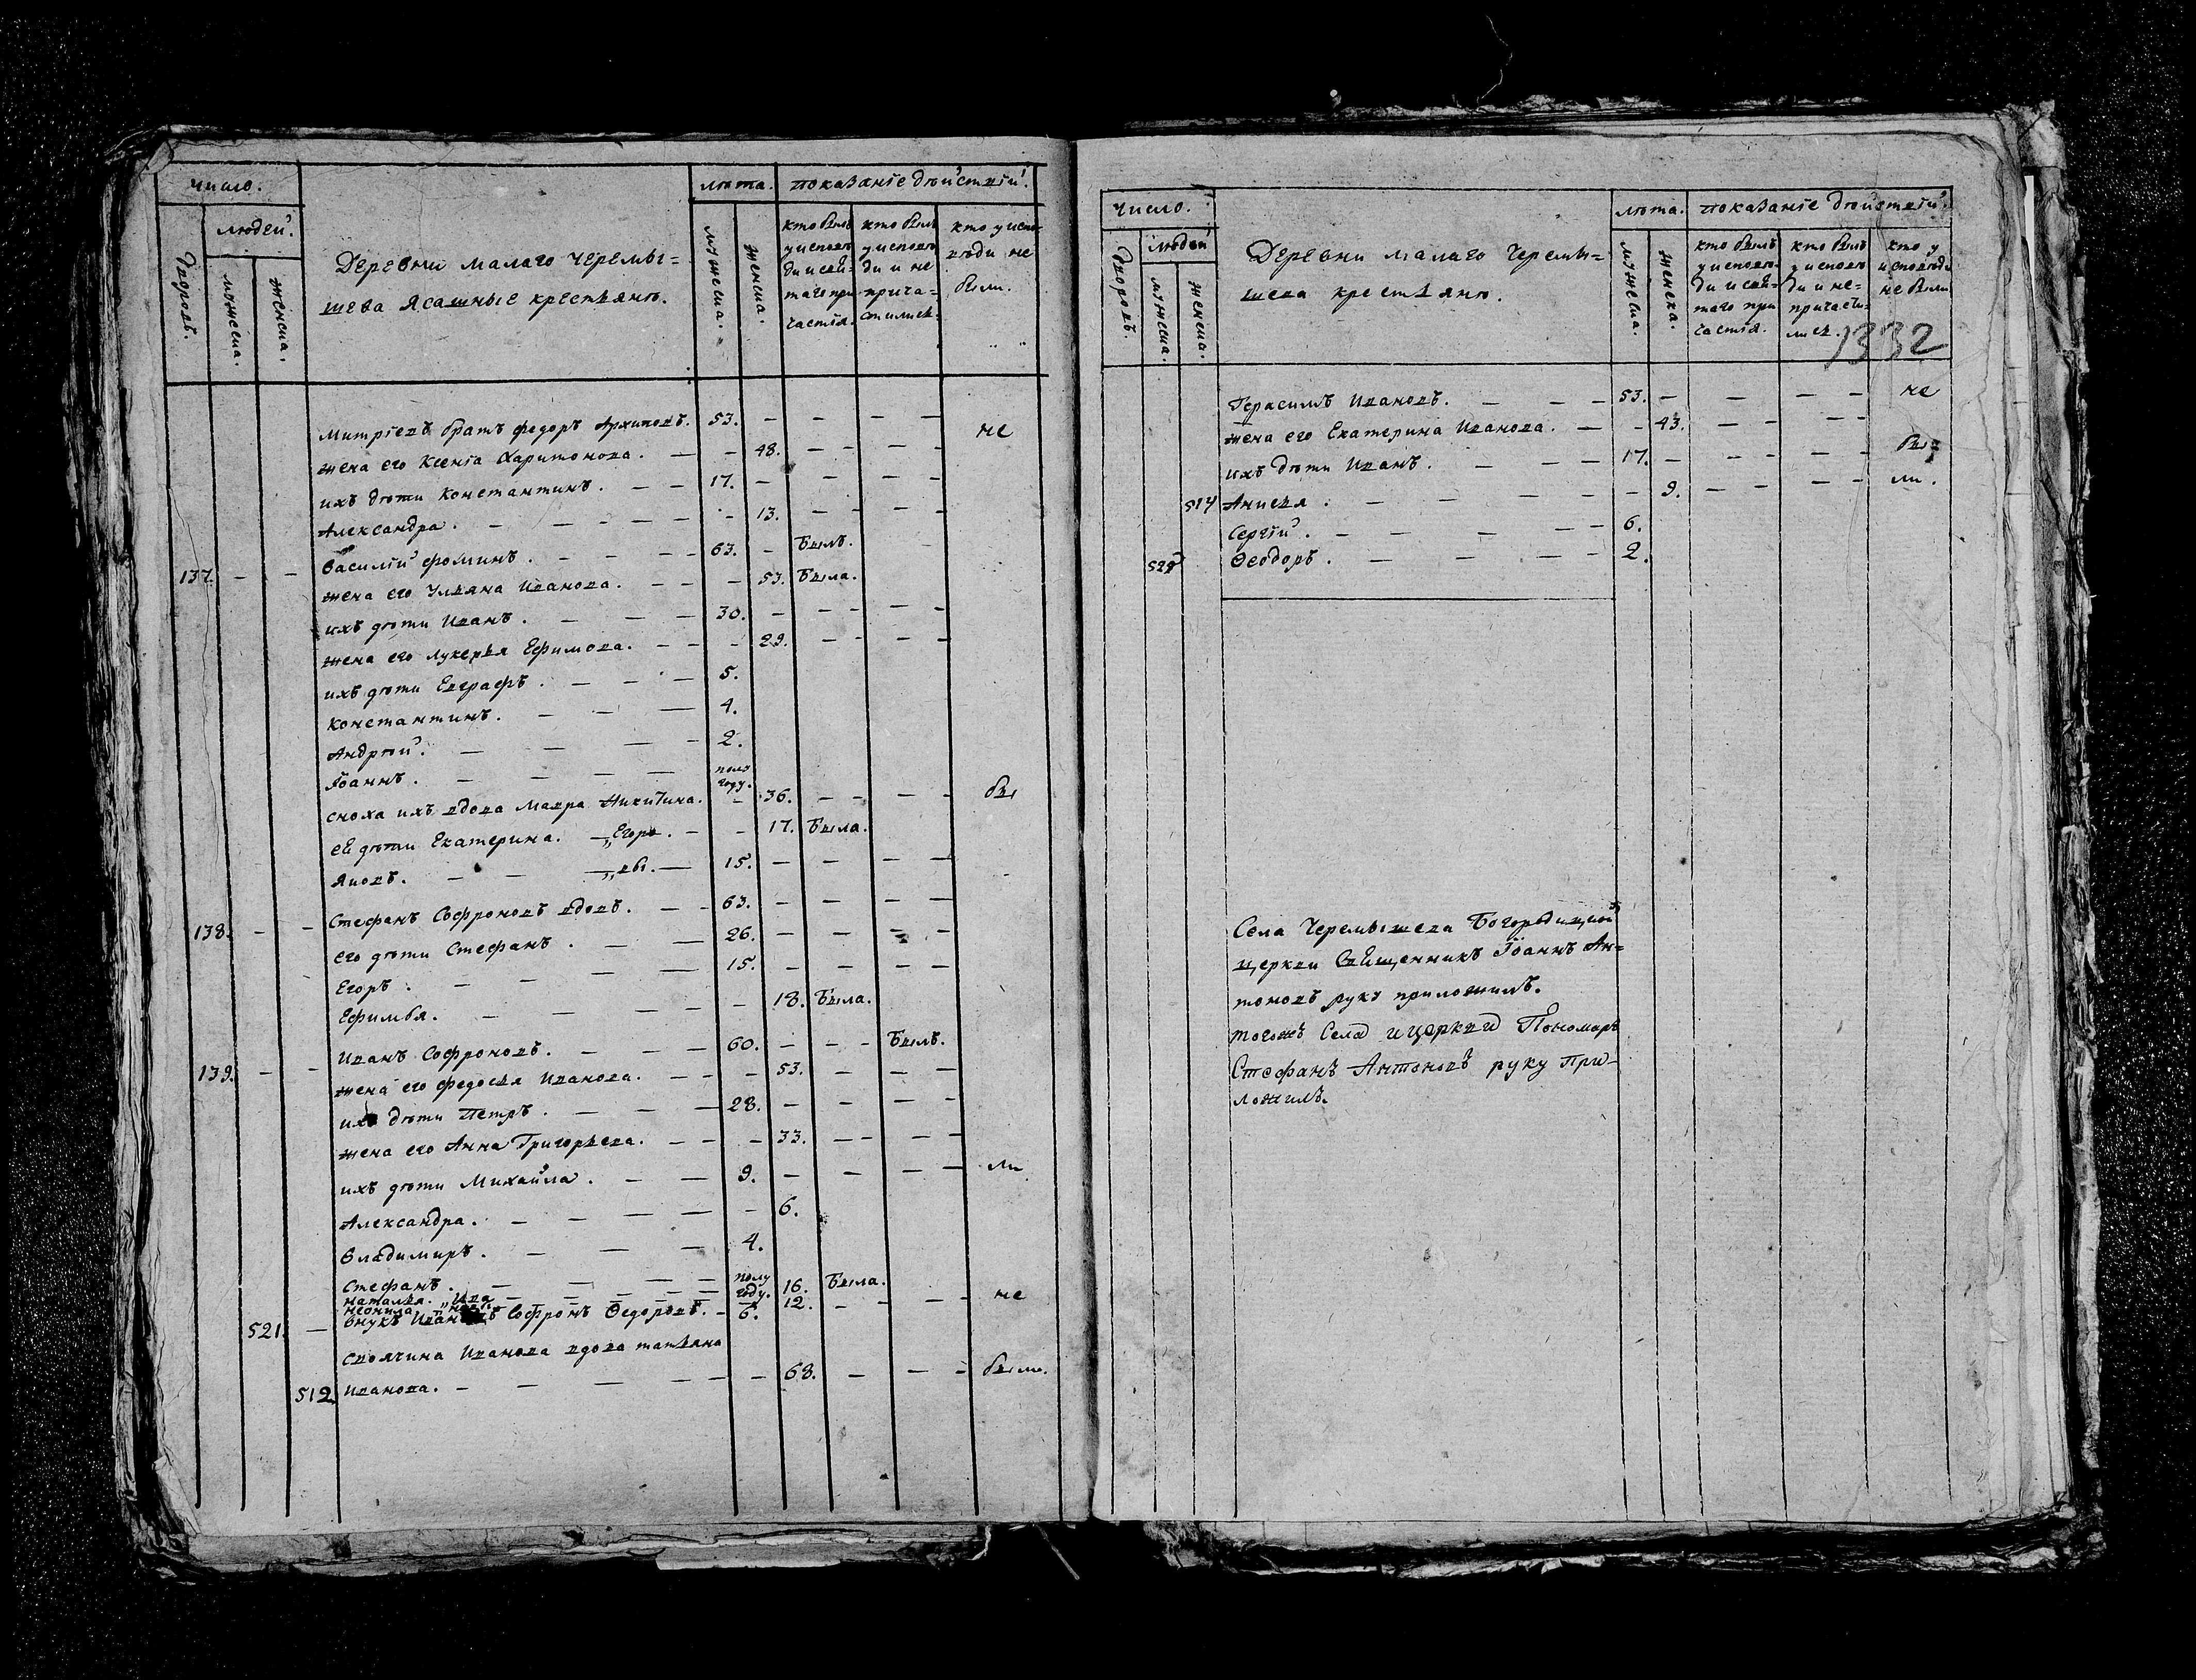 число.
людей.
дворовъ.
мужеска.
женска.
Деревни малаго черемы=
шева Ясашные крестьяне.
лѣта.
мужеска.
женска.
показанїе дѣйствїй.
кто былъ
у исповѣ
ди и свя-
таго при
частїя.
кто былъ
у исповѣ
ди и не
прича=
стился.
кто у испо-
вѣди не
были.
Митрїевъ братъ федоръ Архиповъ. 53. — — — — не
жена его Ксенїа Харитонова. — — 48. — — —
ихъ дѣти Константинъ. — — 17. — — — —
Александра. — — — — — 13. — — — —
137. — — Василїй фоминъ. — — — — 63. — Былъ.
жена его Ульяна Иванова. — — — 53. Была.
ихъ дѣти Иванъ. — — — 30. — — — — —
жена его лукерья Ефимова. — — — 29. — — — —
ихъ дѣти Евграфъ. — — — 5.
Константинъ. — — — 4.
Андрѣй. — — — — 2.
Іоаннъ. — — — — полу
году.
сноха ихъ вдова Мавра Никитина. — 36. — — — — бы
еѣ дѣти Екатерина. — „Егоро. — — 17. Была.
Яковъ. — — — „вы. — 15. — — — —
138. — — Стефанъ Софроновъ вдовъ. — — 63. — — — —
его дѣти Стефанъ. — — 26. — — — —
Егоръ. — — — — 15. — — — —
Ефимья. — — — — — 18. Была.
139. — — Иванъ Софроновъ. — — — 60. — — — Былъ.
жена его федосья Иванова. — — — 53. — — —
ихъ дѣти Петръ. — — — 28. — — — —
жена его Анна Григорьева. — — — 33. — — — —
ихъ дѣти Михайла. — — 9. — — — — ли
Александра. — — — — — 6.
Владимиръ. — — — 4.
Стефанъ. — — — — полу
году.
наталья. „Ива — — — — 16. Была.
неонила. — — — — 12. — — — — не
521. — внукъ Софронъ Ѳедоровъ. — 6.
своячина Иванова вдова татьяна
512 Иванова. — — — — — — 68. — — — были.
число.
людей
дворовъ.
мужеска.
женска.
Деревни малаго Черемы=
шева крестьяне.
лѣта.
мужеска.
женска.
показанїе дѣйствїй.
кто былъ
у исповѣ-
ди и свя-
таго при
частїя.
кто былъ
у исповѣ
ди и не-
причасти=
лися.
кто у
исповѣди
не были
1332
Герасимъ Ивановъ. — — — 53. — — — — не
жена его Екатерина Иванова. — — 43. — — — —
ихъ дѣти Иванъ. — — — 17. — — — — — бы=
514 Анисья. — — — — — 9. — — — — ли.
Сергїй. — — — — — 6.
Ѳеодоръ. — — — — 2.
Села Черемышева Богородицкой
церкви Священникъ Іоаннъ Ан=
тоновъ руку приложилъ.
тогожъ Села и церкви Пономарь
Стефанъ Антоновъ руку При-
ложилъ.